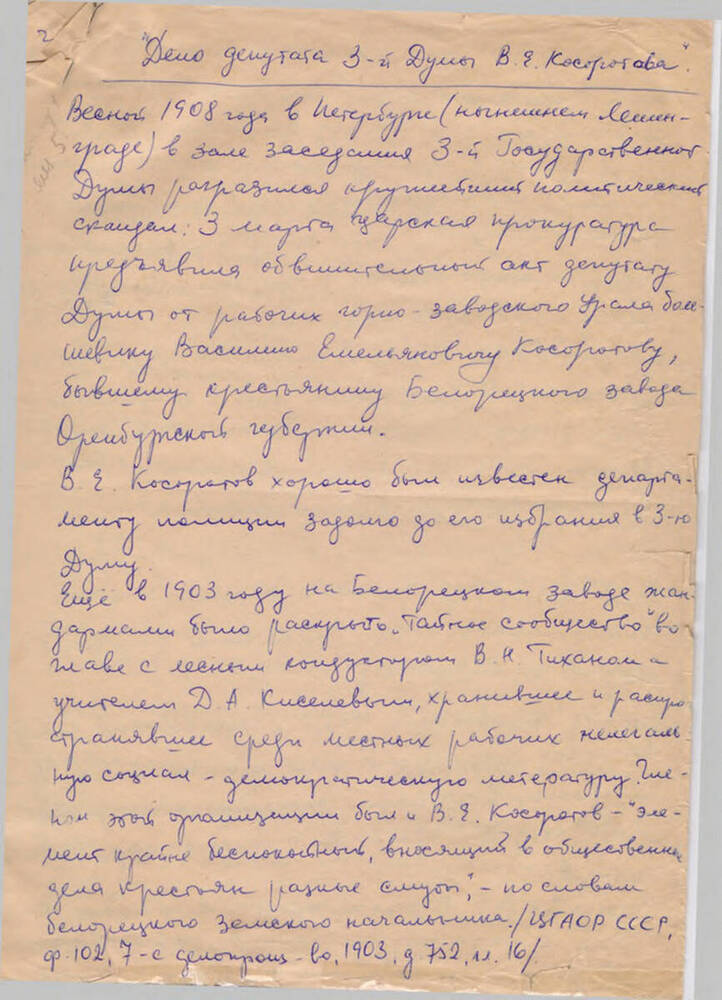 2
"Дело депутата 3-й Думы В.Е. Косоротова".
Весной 1908 года в Петербурге (нынешнем Ленин-
граде) в зале заседания 3-й Государственной
Думы разразился крупнейший политический
скандал: 3 марта царская прокуратура
предъявила обвинительный акт депутату
Думы от рабочих горно-заводского Урала боль-
шевику Василию Емельяновичу Косоротову,
бывшему крестьянину Белорецкого завода
Оренбургской губернии.
В.Е. Косоротов хорошо был известен департа-
менту полиции задолго до его избрания в 3-ю
Думу.
Ещё в 1903 году на Белорецком заводе жан-
дармами было раскрыто "Тайное сообщество" во
главе с лесным кондуктором В.Н. Тиханом и
учителем Д.А. Киселевым, хранившее и распро
странявшее среди местных рабочих нелегаль-
ную социал-демократическую литературу. Чле-
ном этой организации был и В.Е. Косоротов - "эле-
мент крайне беспокойный, вносящий в общественные
дела крестьян разные смуты", - по словам
белорецкого земского начальника. /ЦГАОР СССР,
ф. 102, 7-е делопроиз-во, 1903, д. 752, лл. 16/